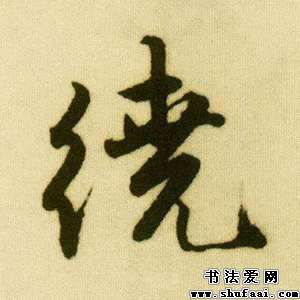 繞
书法爱网
www.shufaai.com